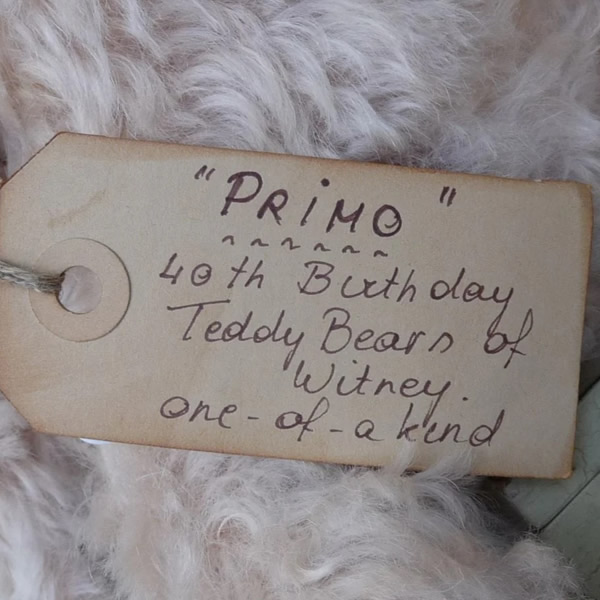 "PRiMO"
~ ~ ~ ~ ~ ~
40th Birthday
Teddy Bears of
Witney.
one-of-a kind